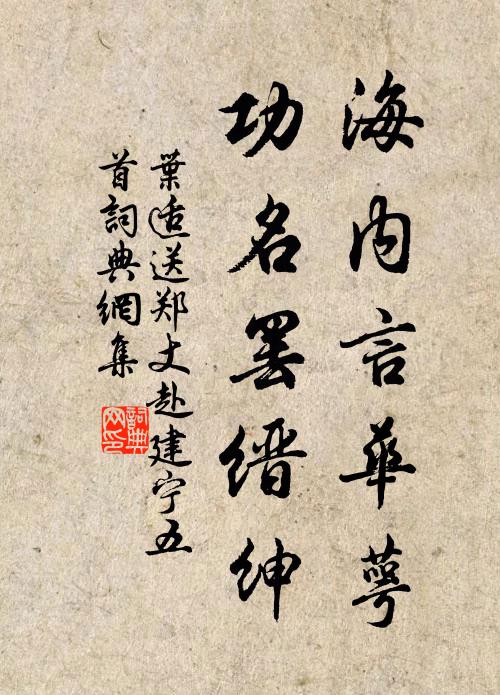 海内言華萼
功名罢缙绅
葉适送郑丈赴建宁五
首詞典網集
詞典網印